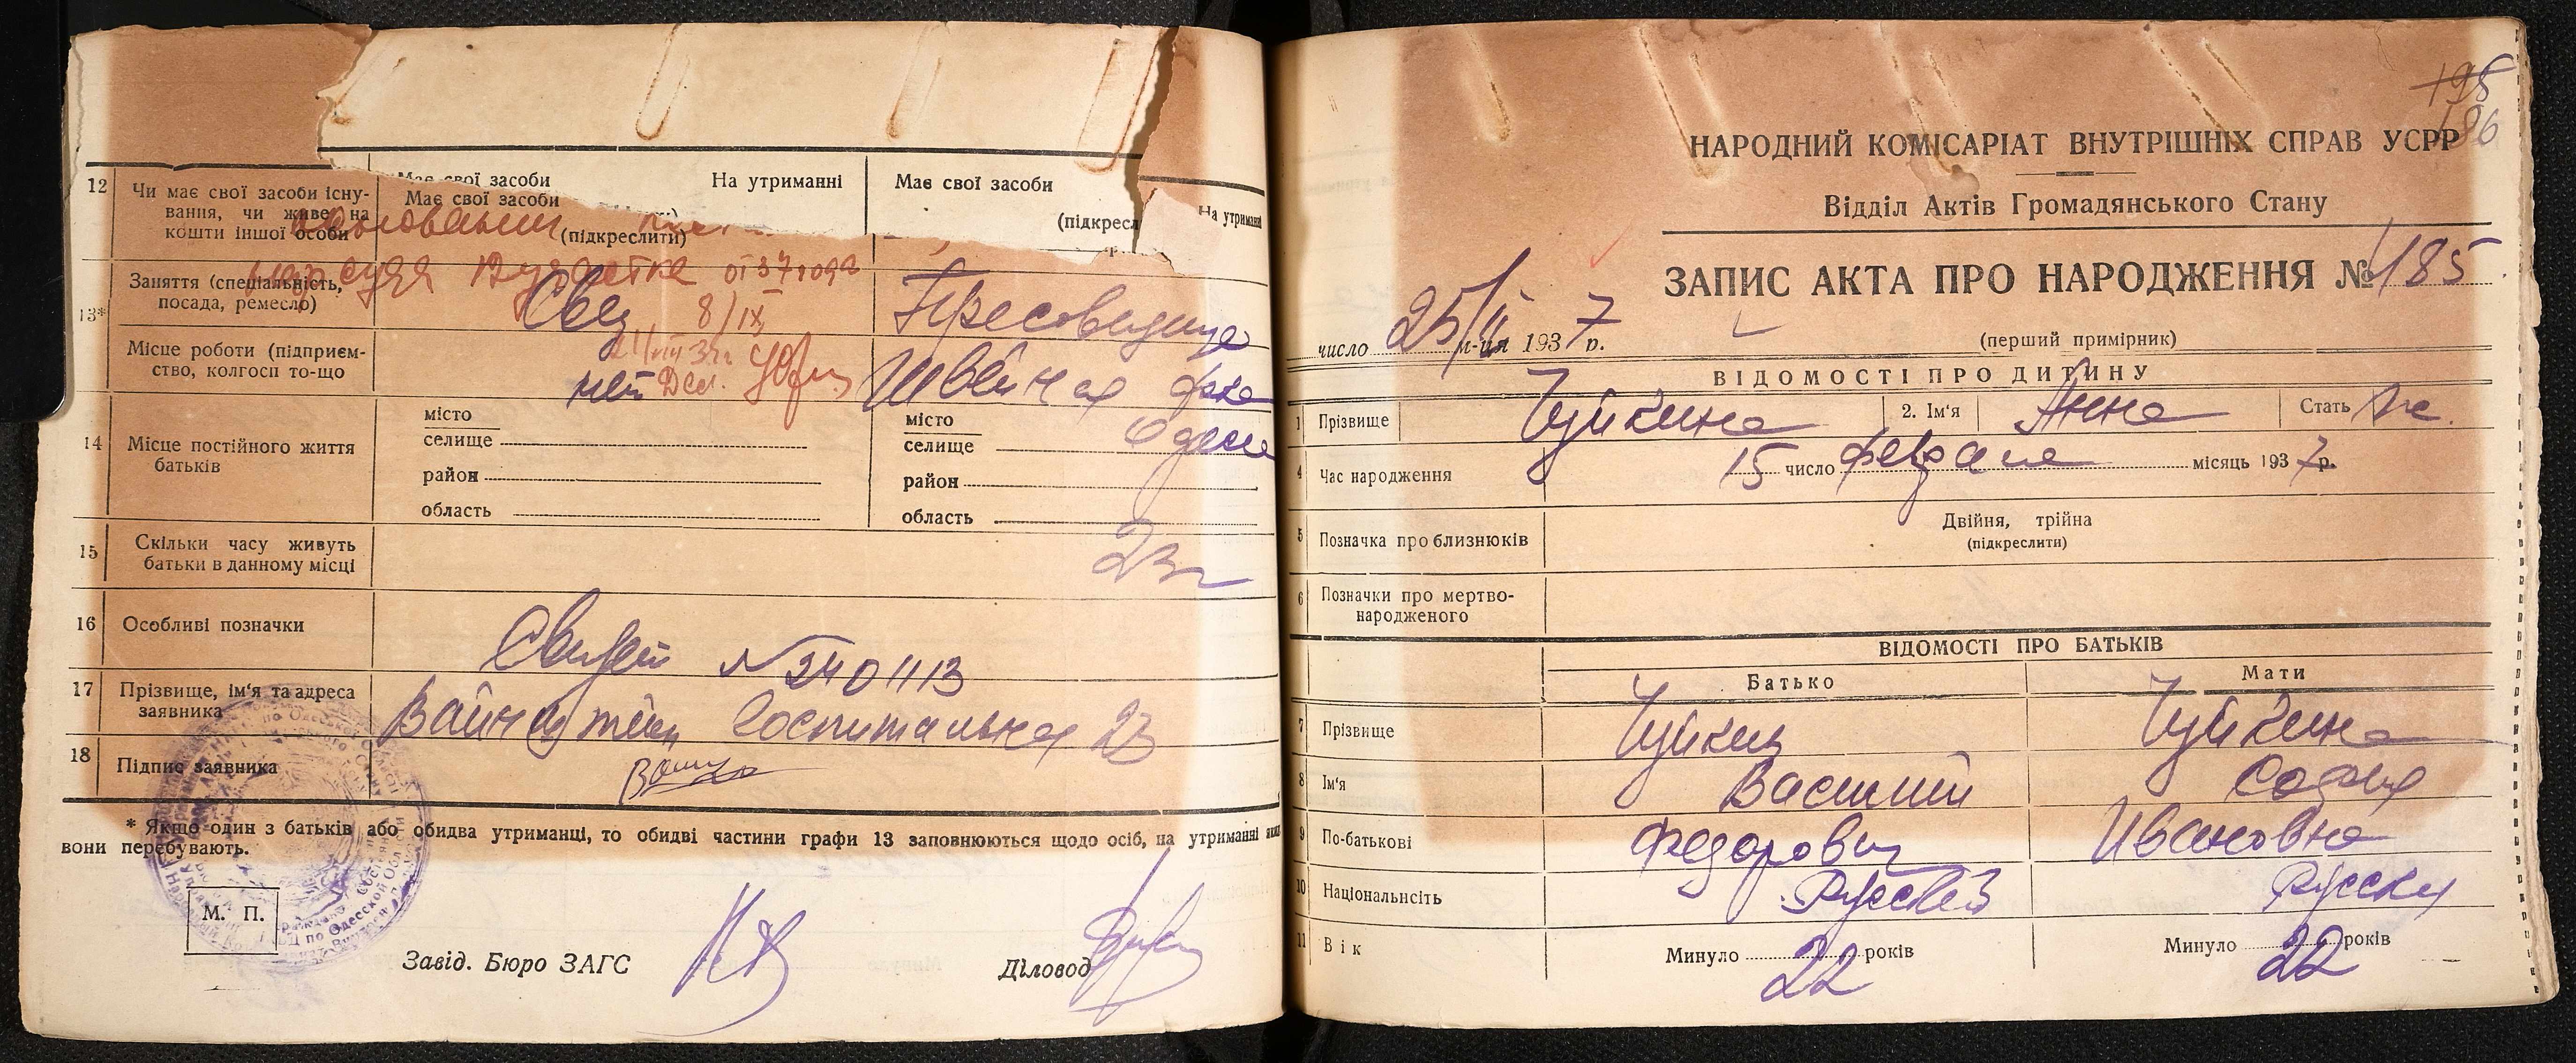 12 Чи має свої засоби існу-
вання, чи живе на
кошти іншої особи
Має свої засоби На утриманні Має свої засоби
Має свої засоби
(підкреслити) (підкресл На утриманні
13* Заняття (спеціальність,
посада, ремесло)
8/IX
Місце роботи (підприєм-
ство, колгосп то-що
нет Швейная ф-ка
14 Місце постійного життя
батьків
місто місто Одесса
селище селище
район район
область область
15 Скільки часу живуть
батьки в данному місці
23 г
16 Особливі позначки
Свидет №240113
17 Прізвище, ім'я та адреса
заявника
Вайнштейн Госпитальная 23
18 Підпис заявника
* Якщо один з батьків або обидва утриманці, то обидві частини графи 13 заповнюються щодо осіб, на утриманні яких
вони перебувають.
М. П.
Завід. Бюро ЗАГС Діловод
198
186
НАРОДНИЙ КОМІСАРІАТ ВНУТРІШНІХ СПРАВ УСРР
Відділ Актів Громадянського Стану
ЗАПИС АКТА ПРО НАРОДЖЕННЯ № 185
число 25/II м-ця 1937 р. (перший примірник)
ВІДОМОСТІ ПРО ДИТИНУ
1 Прізвище Чуйкина 2. Ім'я Анна Стать ж.
4 Час народження 15 число февраля місяць 1937 р.
5 Позначка про близнюків Двійня, трійна
(підкреслити)
6 Позначки про мертво-
народженого
ВІДОМОСТІ ПРО БАТЬКІВ
Батько Мати
7 Прізвище Чуйкин Чуйкина
8 Ім'я Василий София
9 По-батькові Федорович Ивановна
10 Національність Русский Русская
11 Вік Минуло 22 років Минуло 22 років